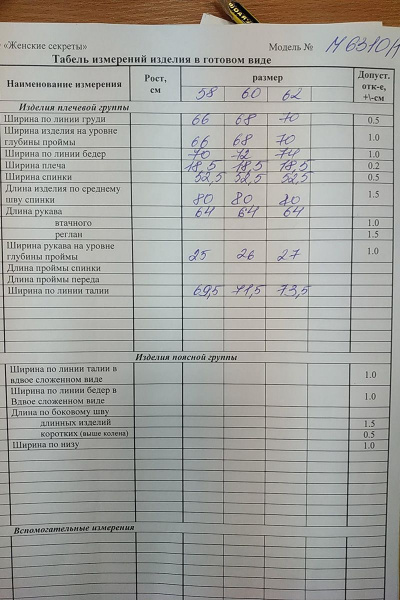 «Женские секреты» Модель № М6310/1
Табель измерений изделия в готовом виде
Наименование измерения Рост, см размер Допуст. отк-е, +\-см
58 60 62
Изделия плечевой группы
Ширина по линии груди 66 68 70 0.5
Ширина изделия на уровне
глубины проймы 66 68 70 1.0
Ширина по линии бедер 70 72 74 1.0
Ширина плеча 18,5 18,5 18,5 0.2
Ширина спинки 52,5 52,5 52,5 0.5
Длина изделия по среднему
шву спинки 80 80 80 1.5
Длина рукава 64 64 64
втачного 1.0
реглан 1.5
Ширина рукава на уровне
глубины проймы 25 26 27 1.0
Длина проймы спинки
Длина проймы переда
Ширина по линии талии 69,5 71,5 73,5
Изделия поясной группы
Ширина по линии талии в
вдвое сложенном виде 1.0
Ширина по линии бедер в
Вдвое сложенном виде 1.0
Длина по боковому шву
длинных изделий 1.5
коротких (выше колена) 0.5
Ширина по низу 1.0
Вспомогательные измерения